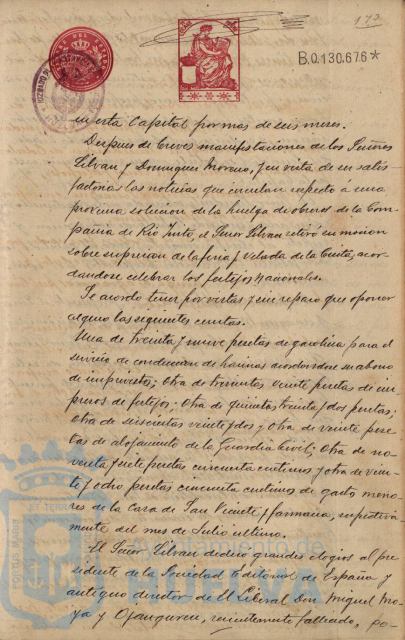 173
B.0.130.676*
en esta Capital por mas de seis meses.
Despues de breves manifestaciones de los Señores
Silvan y Dominguez Moreno, y en vista de ser satis-
factorias las noticias que circulan respecto a una
proxima solucion de la huelga de obreros de la Com-
pañia de Rio Tinto, el Señor Silvan retiró su mocion
sobre supresion de la feria y Velada de la Cinta, acor-
dandose celebrar los festejos nacionales.
Se acordo tener por vistas y sin reparo que oponer
alguno las siguientes cuentas.
Una de treinta y nueve pesetas de gasolina para el
servicio de conduccion de harinas acordandose su abono
de imprevistos; Otra de trescientas veinte pesetas de im-
presos de festejos; Otra de quinientas treinta y dos pesetas;
otra de seiscientas veinte y dos y otra de veinte pese-
tas de alojamiento de la Guardia Civil; Otra de no-
venta y siete pesetas cincuenta centimos y otra de vein-
te y ocho pesetas cincuenta centimos de gastos meno-
res de la Casa de San Vicente y farmacia, respectiva-
mente del mes de Julio ultimo.
El Señor Silvan dedico grandes elogios al pre-
sidente de la Sociedad Editorial de España y
antiguo director de El Liberal Don Miguel Mo-
ya y Ojanguren, recientemente fallecido, po-
PORTUS MARIS
ET TERRAE